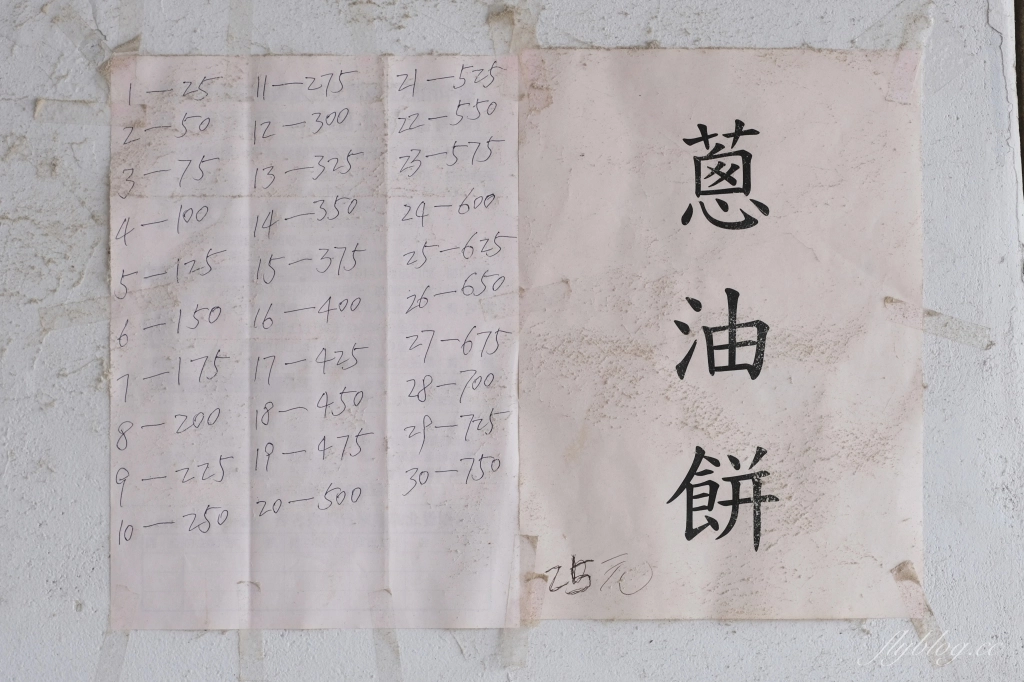 1—25
2—50
3—75
4—100
5—125
6—150
7—175
8—200
9—225
10—250
11—275
12—300
13—325
14—350
15—375
16—400
17—425
18—450
19—475
20—500
21—525
22—550
23—575
24—600
25—625
26—650
27—675
28—700
29—725
30—750
蔥油餅
25元
flyblog.cc